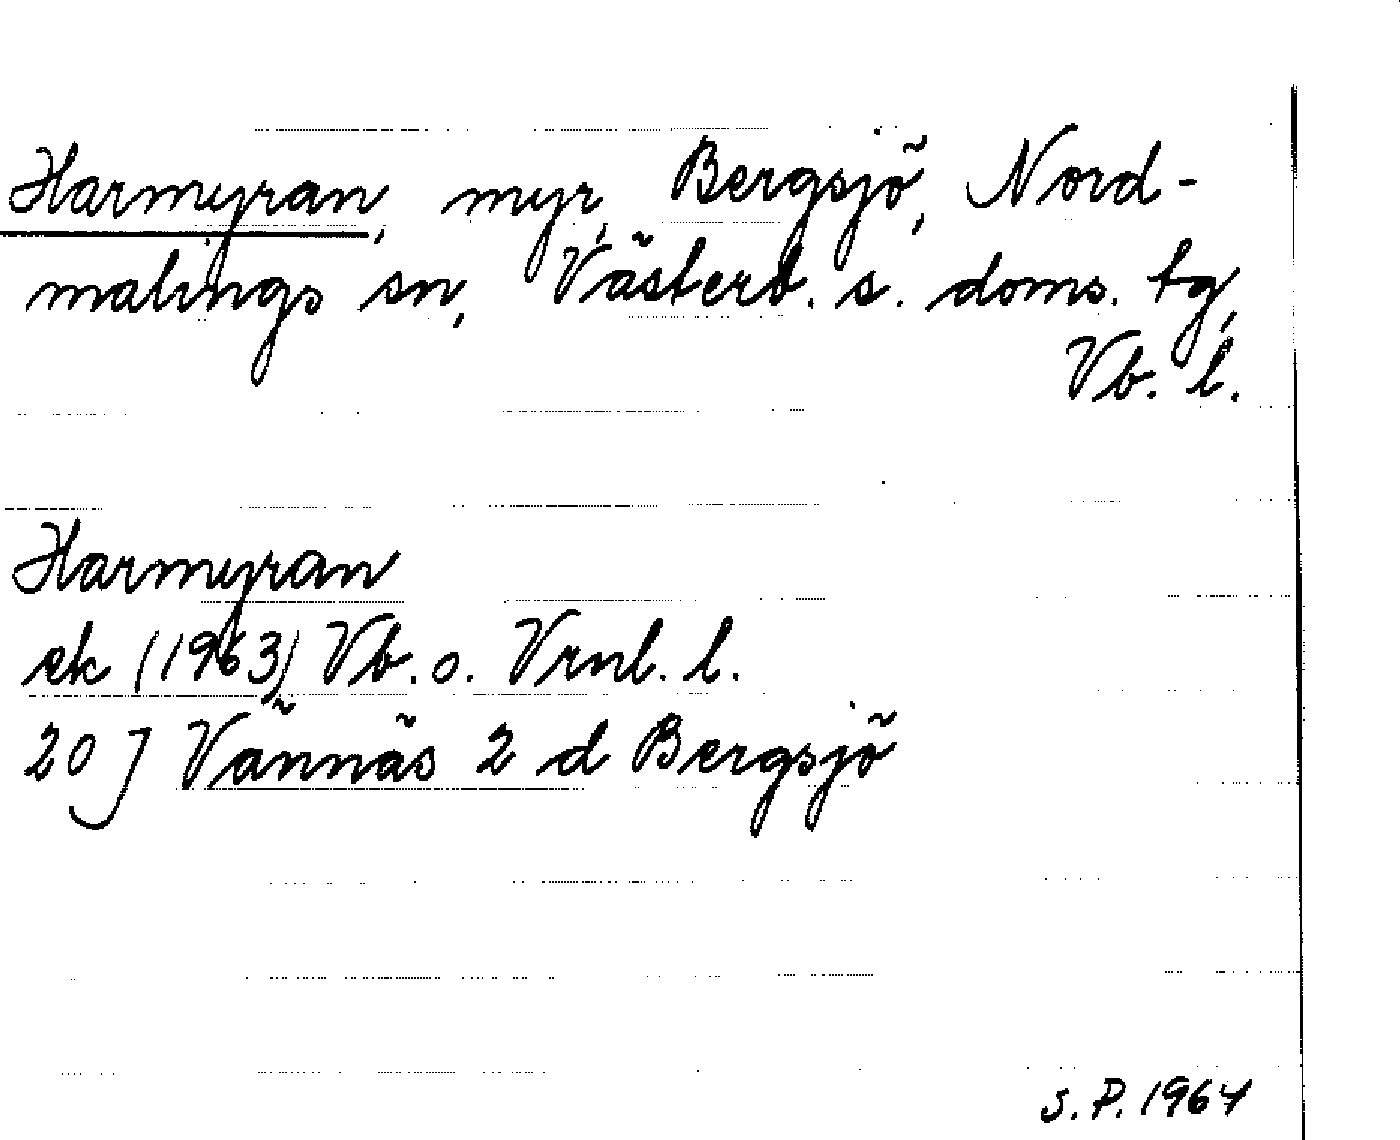 Harmyran, myr, Bergsjö, Nord-
malings sn, Västerb. s. doms. tg,
Vb. l.
Harmyran
ek (1963) Vb. o. Vrnl. l.
20 J Vännäs 2 d Bergsjö
S. P. 1964